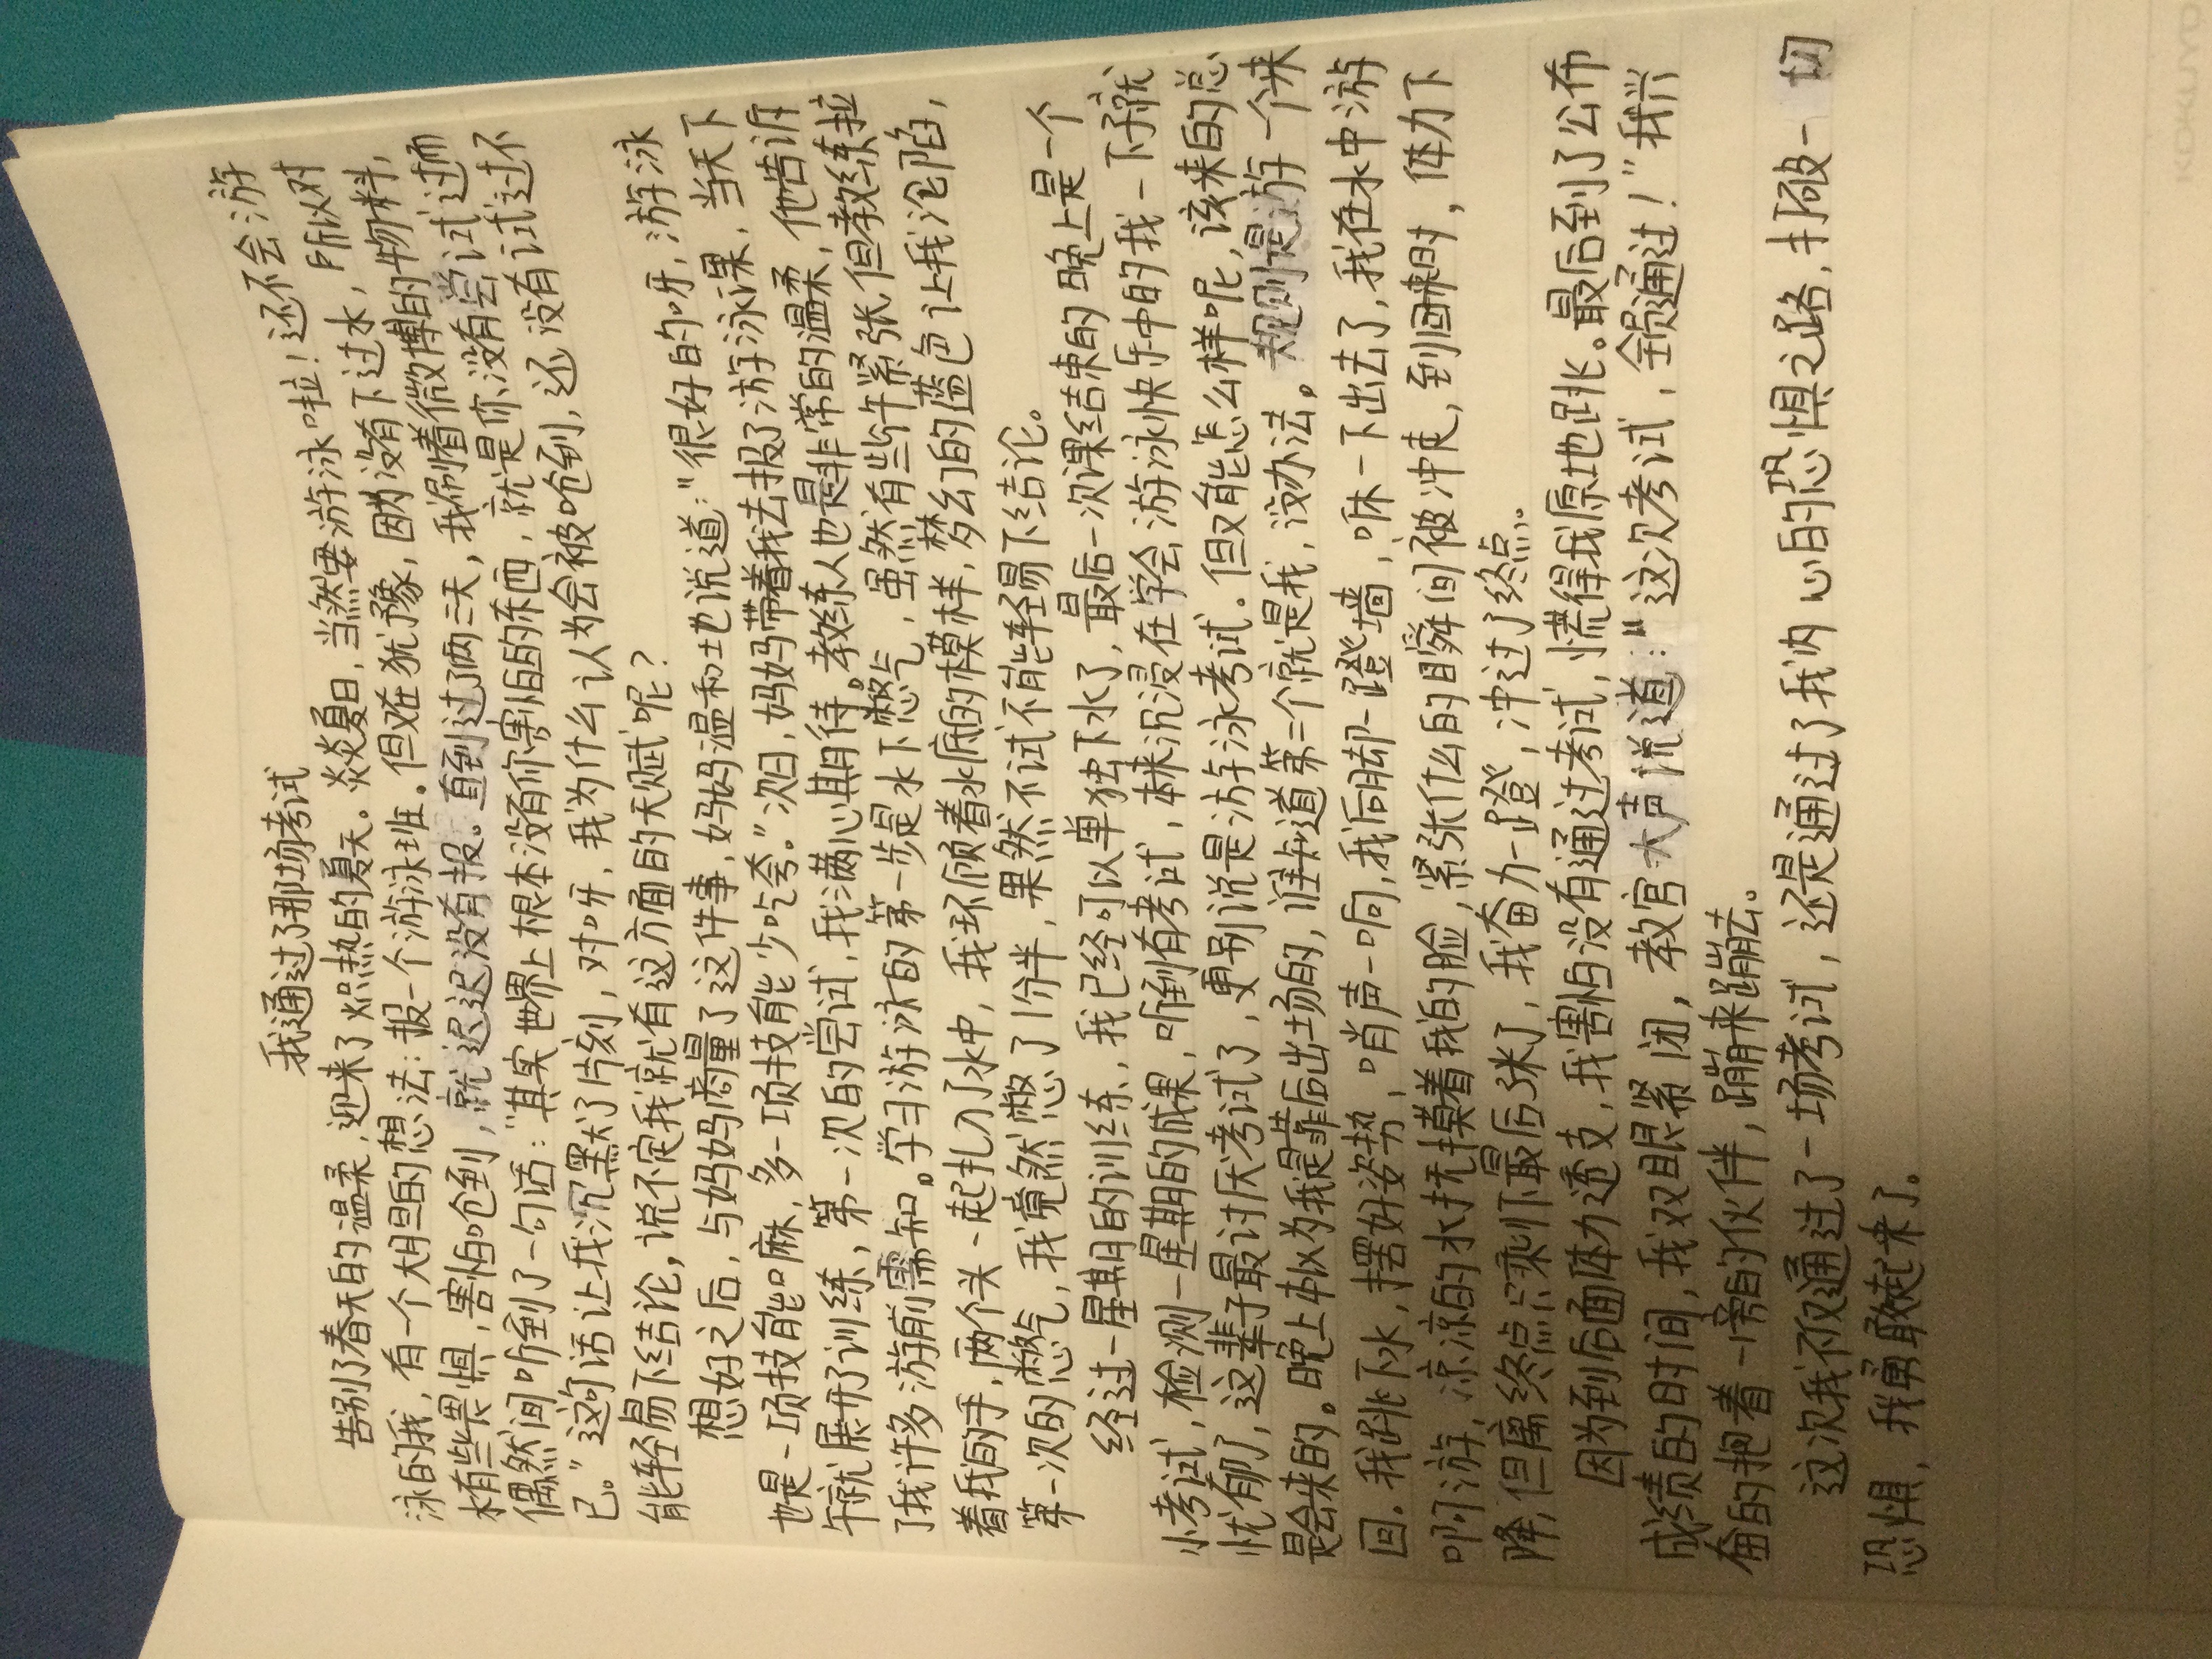 我通过了那场考试
告别了春天的温柔，迎来了炽热的夏天。炎炎夏日，当然要游泳啦！还不会游
泳的我，有一个大胆的想法：报一个游泳班。但又在犹豫，因为没有下过水，所以对
水有些畏惧，害怕呛到，就迟迟没有报。直到过了两三天，我刷着微博的物料，
偶然间听到了一句话：“其实世界上根本没有你害怕的东西，就是你没有尝试过而
已。”这句话让我沉默了片刻，对呀，我为什么认为会被呛到，还没有试过不
能轻易下结论，说不定我就有这方面的天赋呢？
想好之后，与妈妈商量了这件事，妈妈温和地说道：“很好的呀，游泳
也是一项技能嘛，多一项技能少吃亏。”次日，妈妈带着我去报了游泳课，当天下
午就展开了训练，第一次的尝试，我满心期待。教练人也是非常的温柔，他告诉
了我许多游前需知。学习游泳的第一步是水下憋气，虽然有些许紧张但教练拉
着我的手，两个头一起扎入了水中，我环顾着水底的模样，梦幻的蓝色让我沦陷，
第一次的憋气，我竟然憋了1分半，果然不试不能轻易下结论。
经过一星期的训练，我已经可以单独下水了，最后一次课结束的晚上是一个
小考试，检测一星期的成果，听到有考试，本来沉浸在学会游泳快乐中的我一下子就
忧郁了，这辈子最讨厌考试了，更别说是游泳考试．但又能怎么样呢，该来的总
是会来的。晚上本以为我是靠后出场的，谁知道第二个就是我，没办法。规则是游一个来
回．我跳下水，摆好姿势，哨声一响，我后脚一蹬墙，咻一下出去了，我在水中游
啊游，凉凉的水抚摸着我的脸，紧张什么的瞬间被冲走，到回来时，体力下
降，但离终点只剩下最后3米了，我奋力一蹬，冲过了终点。
因为到后面体力透支，我害怕没有通过考试，慌得我原地跳。最后到了公布
成绩的时间，我双眼紧闭，教官大声说道：“这次考试，全员通过！”我兴
奋的抱着一旁的伙伴，蹦来蹦去。
这次我不仅通过了一场考试，还是通过了我内心的恐惧之路，打破一切
恐惧，我勇敢起来了。
KOKUYO